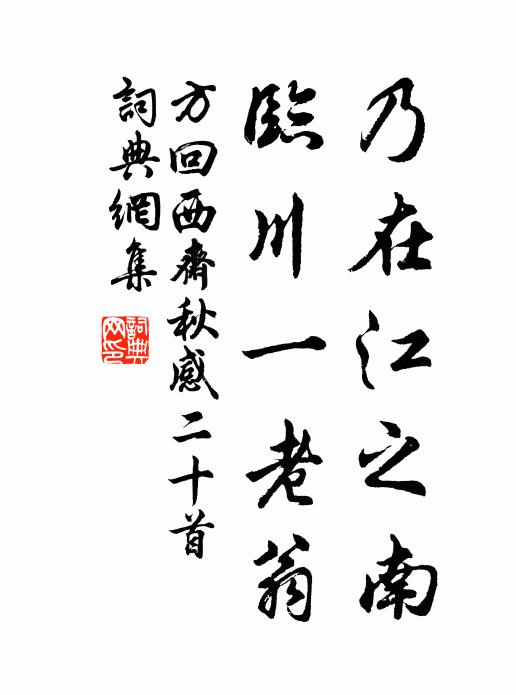 乃在江之南
臨川一老翁
方回西齋秋感二十首
詞典網集
詞典網印